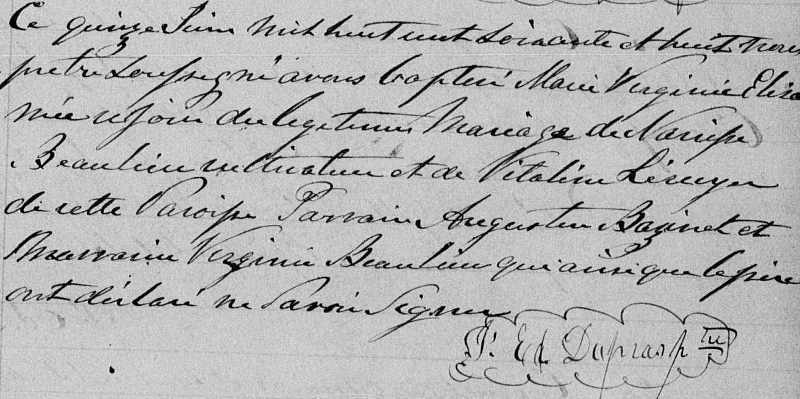 Ce quinze Juin mil huit cent soixante et huit nous
prêtre soussigné avons baptisé Marie Virginie Eliza
née ce jour du légitime Mariage de Narcisse
Beaulieu cultivateur et de Vitaline
de cette Paroisse Parrain Augustin et
Marraine Virginie Beaulieu qui ainsi que le père
ont déclaré ne savoir signer
J. Ed Dupras ptre